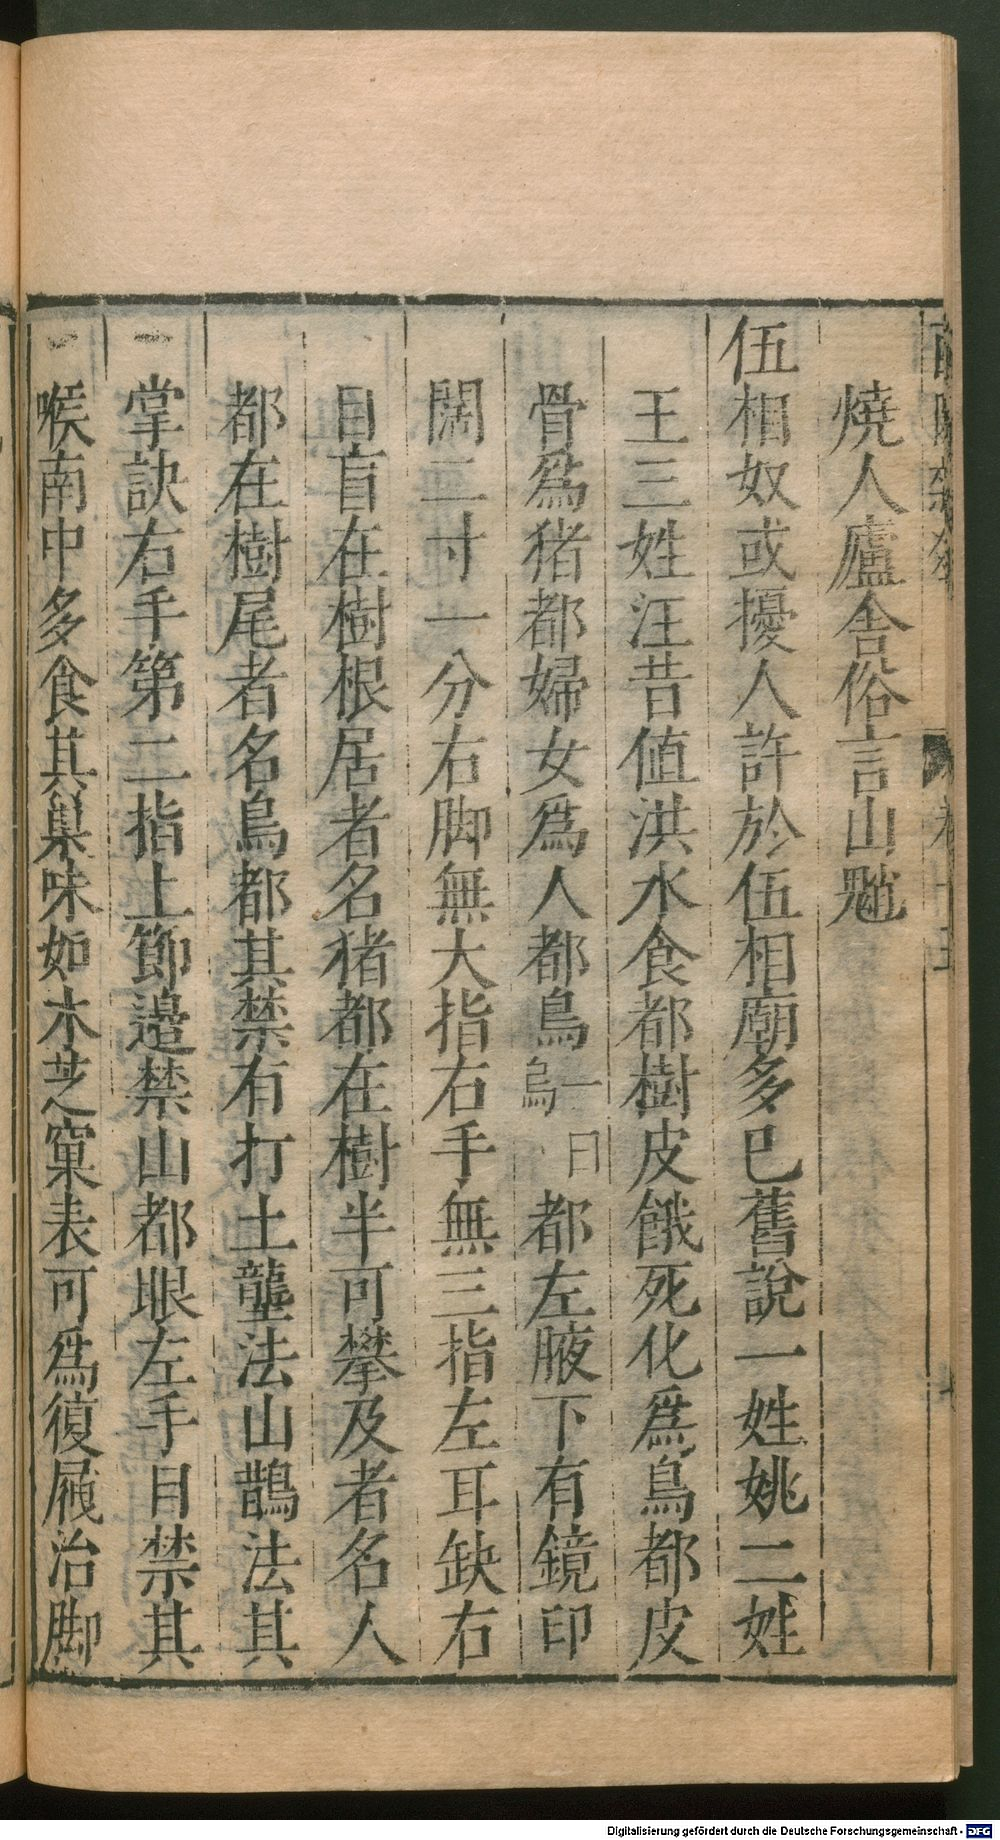 燒人廬舍俗言山魈
伍相奴或擾人許於伍相廟多已舊說一姓姚二姓
王三姓汪昔值洪水食都樹皮餓死化為鳥都皮
骨為猪都婦女為人都鳥一曰烏都左腋下有鏡印
闊二寸一分右脚無大指右手無三指左耳缺右
目盲在樹根居者名猪都在樹半可攀及者名人
都在樹尾者名鳥都其禁有打土壟法山鵲法其
掌訣右手第二指上節邉禁山都眼左手目禁其
喉南中多食其巢味如木芝窠表可為履屧治脚
Digitalisierung gefördert durch die Deutsche Forschungsgemeinschaft - DFG